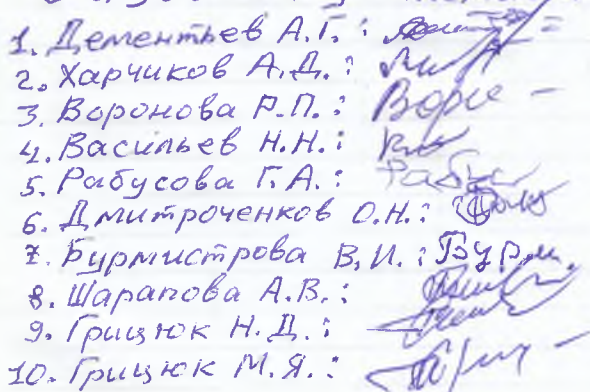 1. Дементьев А.Г. :
2. Харчиков А.Д. :
3. Воронова Р.П. :
4. Васильев Н.Н. :
5. Рабусова Г.А. :
6. Дмитроченков О.Н. :
7. Бурмистрова В.И. : Бурм.
8. Шарапова А.В. :
9. Грицюк Н.Д. :
10. Грицюк М.Я. :